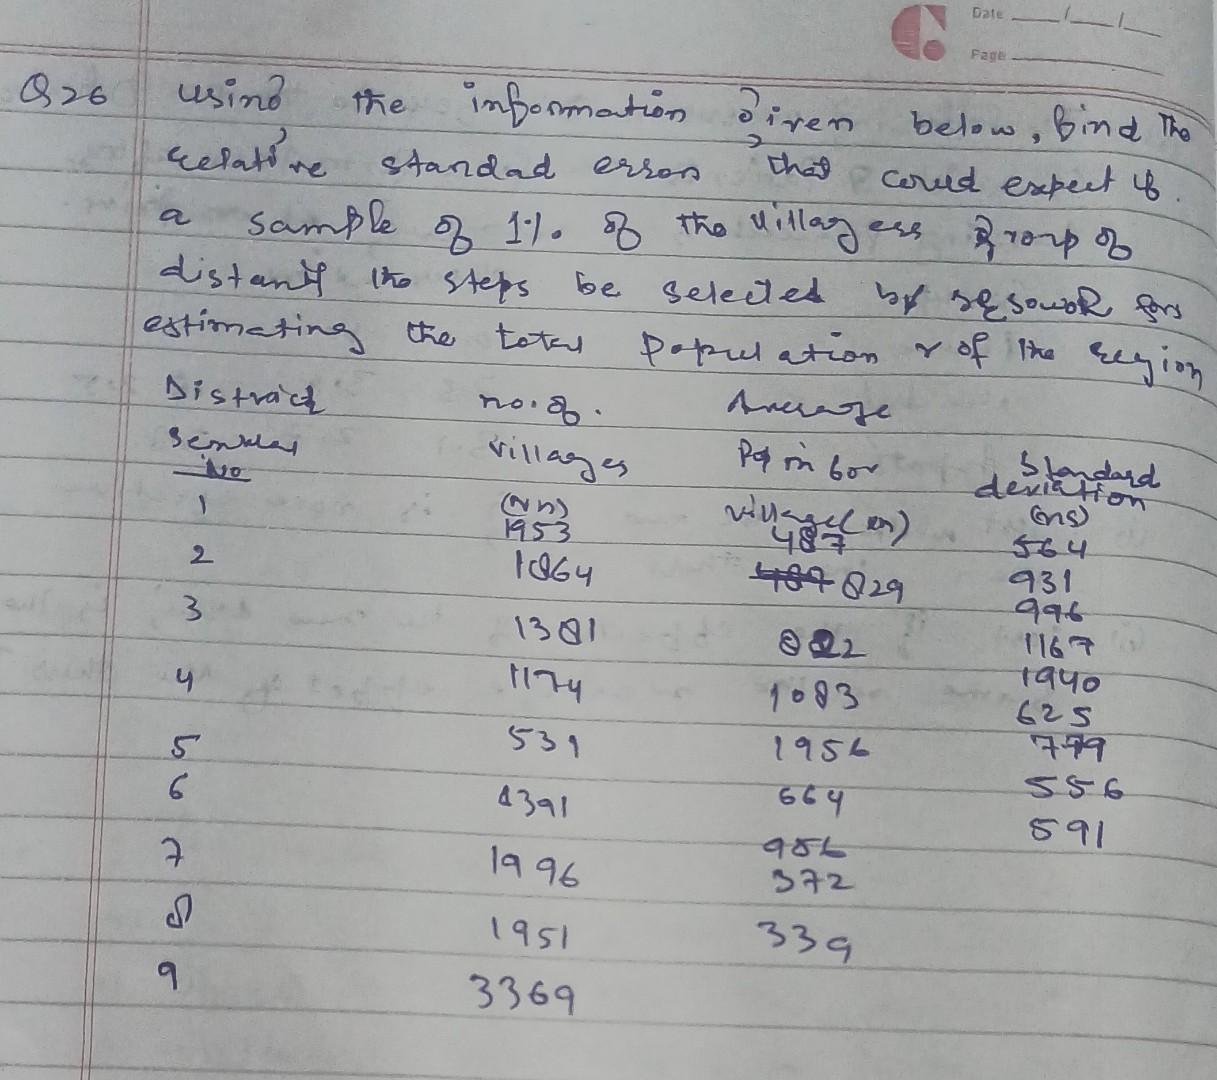 Date
Page
Q26 using the information given below, find the
relative standad error that could expect if
a sample of 1%. of the villagess group of
the steps be selected by for
estimating the total population r of the region
District no. of. Average
villages Pop
No Standard
deviation
1 1953 487 564
2 1864 829 931
3 1381 822 996
4 1174 1083 1167
5 539 1956 1940
6 1391 664 625
7 1996 956 779
8 1951 372 556
9 3369 339 591